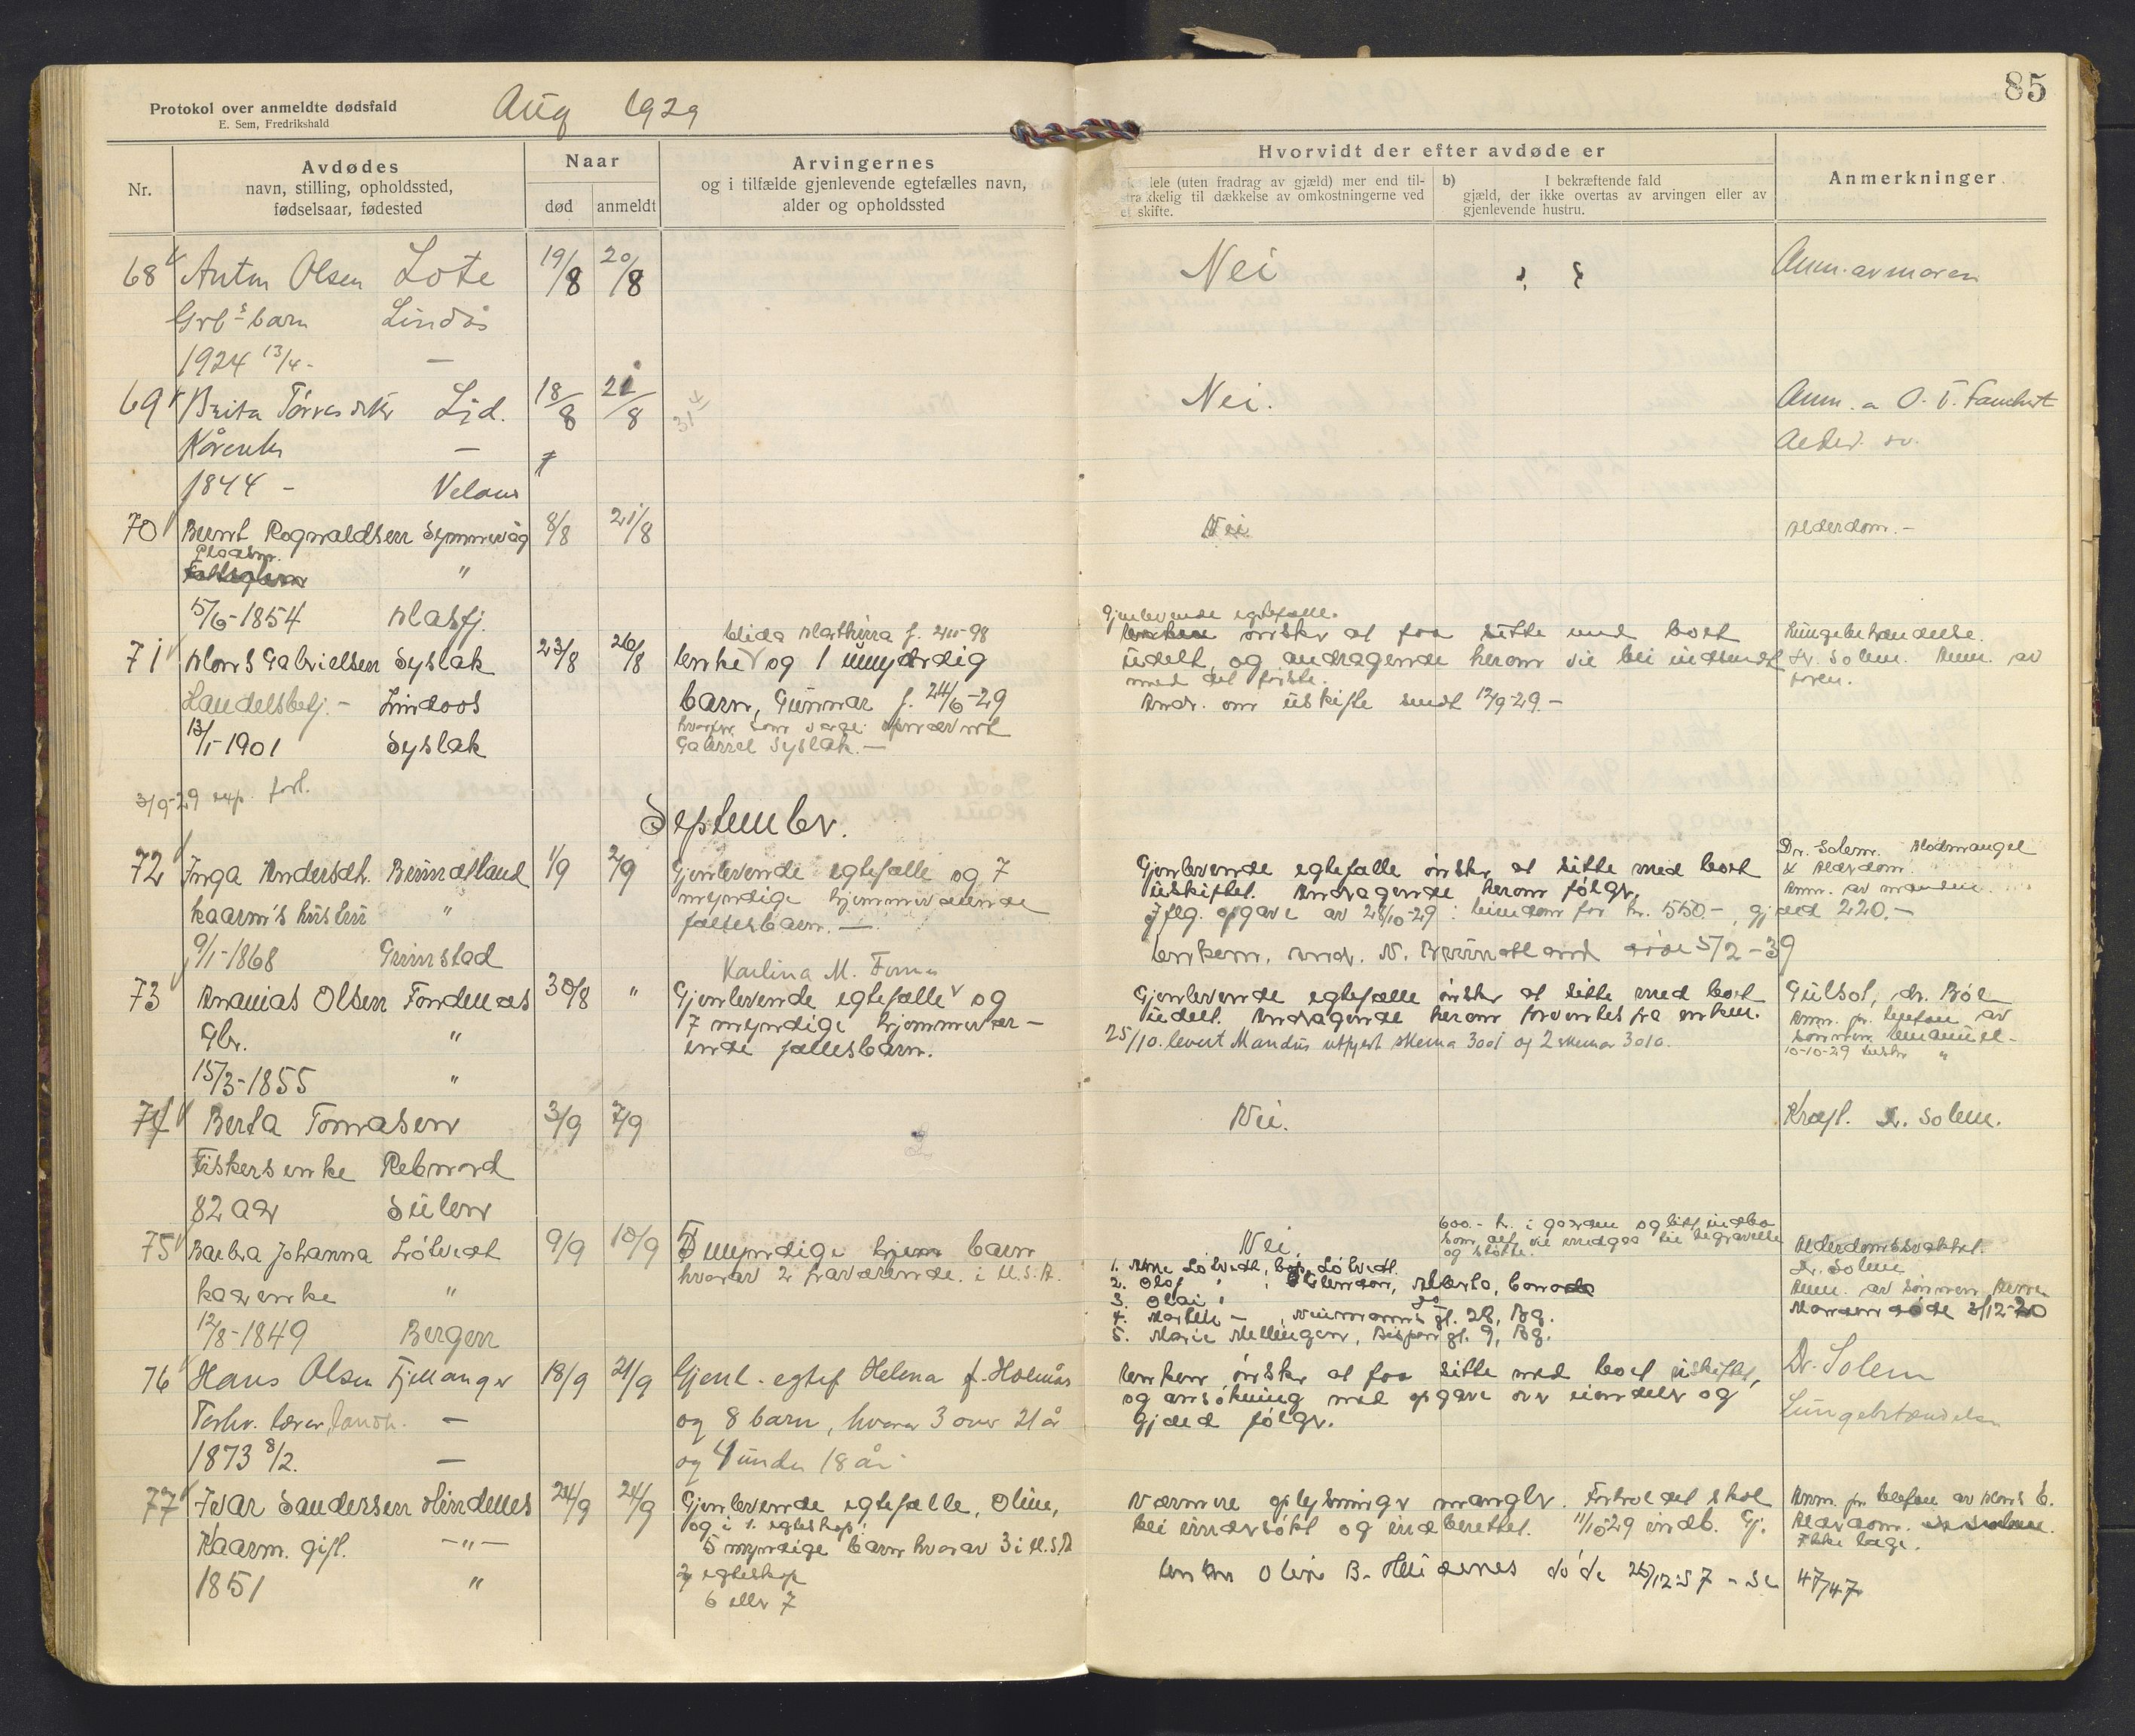 Protokol over anmeldte dødsfald
E. Sem, Fredrikshald
Aug 1929
85
Nr.
Avdødes
navn, stilling, opholdssted,
fødselsaar, fødested
Naar
død anmeldt
Arvingernes
og i tilfælde gjenlevende egtefælles navn,
alder og opholdssted
Hvorvidt der efter avdøde er
lele (uten fradrag av gjæld) mer end til-
strækkelig til dækkelse av omkostningerne ved
et skifte.
b) I bekræftende fald
gjæld, der ikke overtas av arvingen eller av
gjenlevende hustru.
Anmerkninger
68 Anton Olsen Lote 19/8 20/8 Nei Anm. av moren
Grb^s barn Lindås
1924 13/4 - —
69 Brita 18/8 21/8 Nei. Anm. a O. T.
Kårenke —
1844 -
70 Bernt Rognaldsen Synnevåg 8/8 21/8 Nei Alderdom. -
"
5/6-1854 Masfj.
71 Mons Gabrielsen Syslak 23/8 26/8
Handelsbetj. - Lindaas
13/1-1901 Syslak
f. 2/11-98
enke og 1 umyndig
barn, Gunnar f. 24/6-29
hvorfor som verge opnævnt
Gabriel Syslak. —
Gjenlevende egtefælle
ønsker at faa sitte med boet
udelt, og andragende herom vil bli indsendt
med det første.
Andr. om uskifte sendt 12/9-29. -
Dr. Solem. Anm. av
3/9-29 forl.
September.
72 Inga Andersdt. Brundtland 1/9 2/9
kaarm's hustru "
9/1-1868 Grimstad
Gjenlevende egtefælle og 7
myndige hjemmeværende
fællesbarn. —
Gjenlevende egtefælle ønsker at sitte med boet
uskiftet. Andragende herom følger.
Iflg. opgave av 28/10-29: eiendom for kr. 550.-, gjæld 220.-
Enkem. Andr. N. Brundtland død 5/2-39
Dr. Solem. Blodmangel
& Alderdom.
Anm. av manden.
73 Ananias Olsen Fondenæs 30/8 "
Gbr. "
15/3-1855 "
Karlina M.
Gjenlevende egtefælle og
7 myndige hjemmevær-
ende fællesbarn.
Gjenlevende egtefælle ønsker at sitte med boet
udelt. Andragende herom forventes fra enken.
25/10. levert Mandus utfylt skema 3001 og 2 skemar 3010.
Gulsot, dr. Böe
Anm. pr. telefon av
sønnen Emanuel -
10-10-29 "
74 Berta Tomasen 3/9 7/9 Nei. Kræft. Dr. Solem.
Fiskersenke Rebnord
82 aar Sulen
75 Barbra Johanna Låtvedt 9/9 10/9
kaarenke "
12/8-1849 Bergen
5 myndige barn
hvorav 2 fraværende i U.S.A.
Nei.
600.- kr. i gaarden og litt indbo
som alt vil medgaa til begravelse
og støtte.
1. Arne Låtvedt, bop. Låtvedt.
2. Olaf " , Alberta, Canada
3. Olai " do
4. Marthe — , Neumanns gt. 28, Bg.
5. Marie Mellingen, Bispen gt. 9, Bg.
Alderdomssvakhet.
Dr. Solem
Anm. av sønnen Arne
Manden døde 3/12-20
76 Hans Olsen Fjellanger 18/9 21/9
Forhv. lærer, landh. —
1873 8/2. —
Gjenl. egtef Helena f. Holmås
og 8 barn, hvorav 3 over 21 år
og 4 under 18 år
Enken ønsker at faa sitte med boet uskiftet,
og ansøkning med opgave over eiendeler og
gjæld følger.
Dr. Solem
Lungebetændelse
77 Ivar Sandersen Hindenes 24/9 24/9
Kaarm. gift. —"—
1851 "
Gjenlevende egtefælle, Oline,
og i 1. egteskap:
5 myndige barn hvorav 3 i U.S.A
2 egteskap
6 eller 7
Nærmere oplysninger mangler. Forholdet skal
bli undersøkt og indberettet. 11/10-29 indb. Gj.
Enken Oline B. Hindenes døde 26/12-57 - se 47/47
Anm. pr. telefon av Mons E.
Alderdom.
Ikke læge.